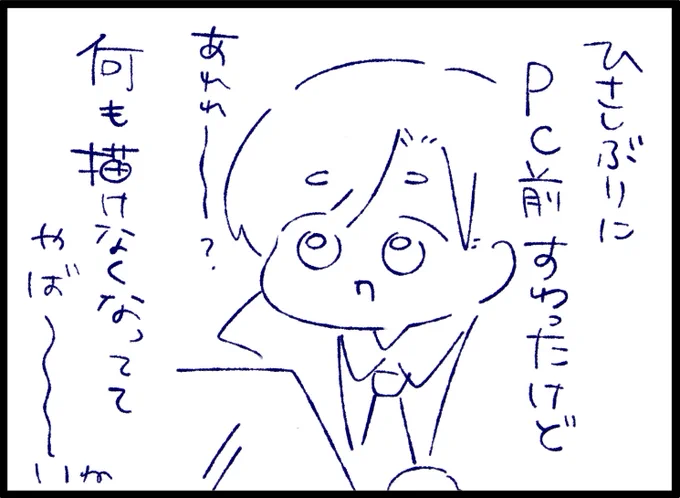 ひさしぶりに
PC前すわったけど
あれれ〜?
何も描けなくなってて
やば〜いわ